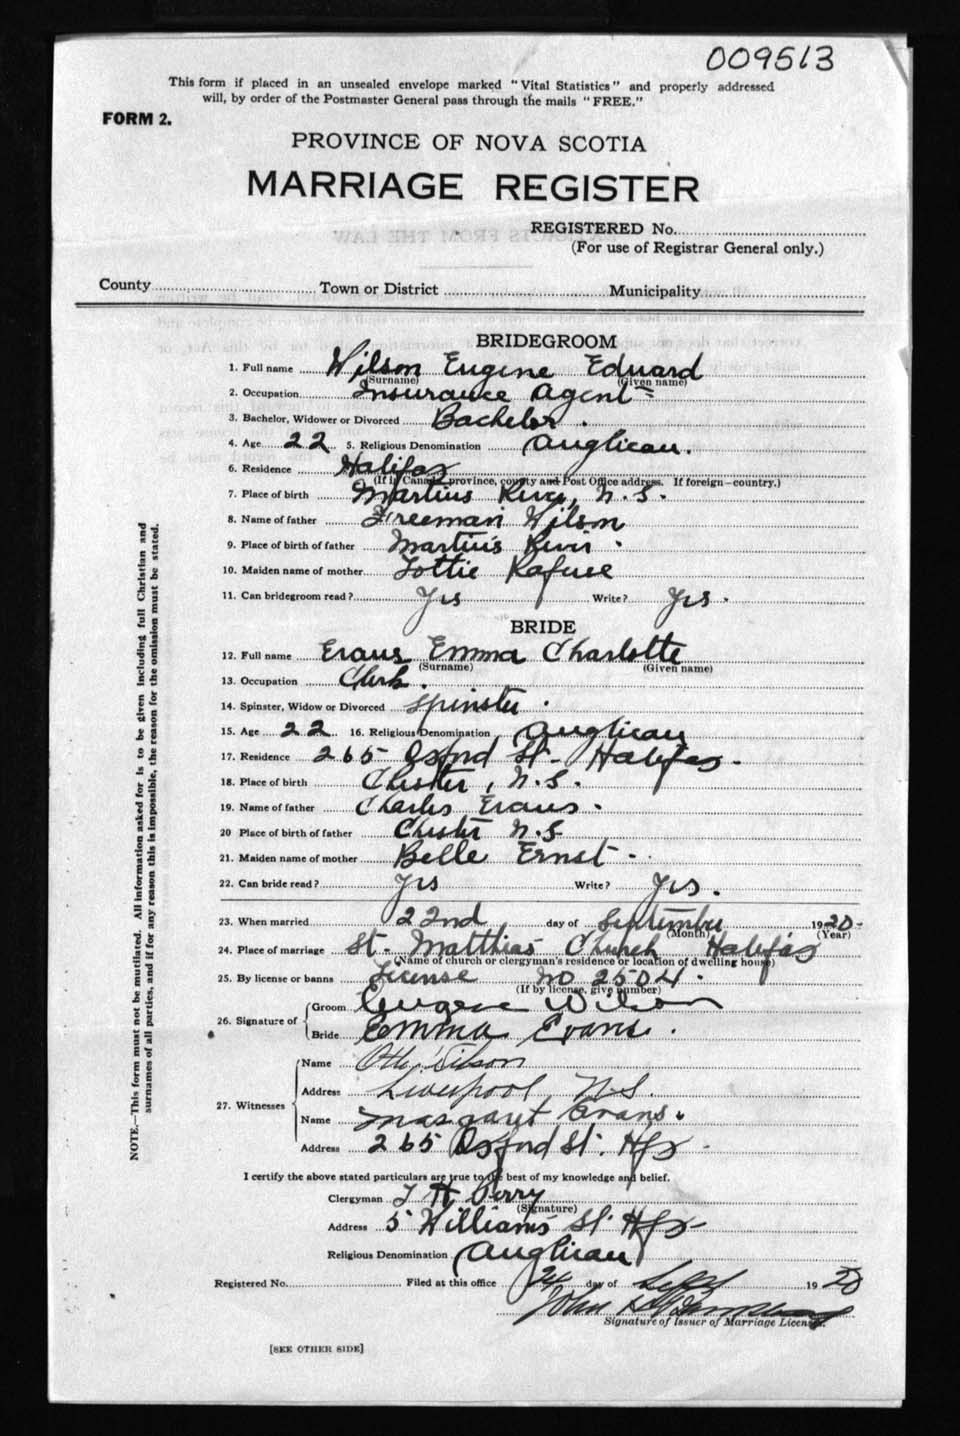 009513
This form if placed in an unsealed envelope marked "Vital Statistics" and properly addressed
will, by order of the Postmaster General pass through the mails "FREE."
FORM 2.
PROVINCE OF NOVA SCOTIA
MARRIAGE REGISTER
REGISTERED No.
(For use of Registrar General only.)
County Town or District Municipality
BRIDEGROOM
1. Full name Wilson Eugene Edward
(Surname) (Given name)
2. Occupation Insurance Agent
3. Bachelor, Widower or Divorced Bachelor.
4. Age 22 5. Religious Denomination Anglican.
6. Residence Halifax
(If in Canada province, county and Post Office address. If foreign—country.)
7. Place of birth Martins River, N.S.
8. Name of father Freeman Wilson
9. Place of birth of father Martins River.
10. Maiden name of mother Lottie Rafuse
11. Can bridegroom read? Yes Write? Yes.
BRIDE
12. Full name Evans Emma Charlotte
(Surname) (Given name)
13. Occupation Clerk.
14. Spinster, Widow or Divorced Spinster.
15. Age 22 16. Religious Denomination Anglican
17. Residence 265 Oxford St. Halifax.
18. Place of birth Chester, N.S.
19. Name of father Charles Evans.
20 Place of birth of father Chester N.S.
21. Maiden name of mother Belle Ernst.
22. Can bride read? Yes Write? Yes.
23. When married 22nd day of September 1920
(Month) (Year)
24. Place of marriage St. Matthias Church Halifax
(Name of church or clergyman's residence or location of dwelling house)
25. By license or banns License No 2504.
(If by license, give number)
26. Signature of Groom Eugene Wilson
Bride Emma Evans.
27. Witnesses Name Otto Wilson
Address Liverpool, N.S.
Name Margaret Evans.
Address 265 Oxford St. Hfx
I certify the above stated particulars are true to the best of my knowledge and belief.
Clergyman T H Perry
(Signature)
Address 5 Williams St. Hfx
Religious Denomination Anglican
Registered No. Filed at this office 24 day of Sept 1920
John
Signature of Issuer of Marriage License.
[SEE OTHER SIDE]
NOTE.—This form must not be mutilated. All information asked for is to be given including full Christian and
surnames of all parties, and if for any reason this is impossible, the reason for the omission must be stated.